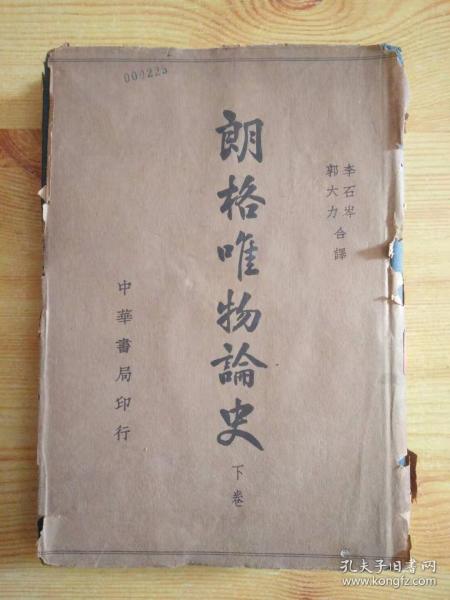 004225
李石岑
郭大力
合譯
朗格唯物論史
下卷
中華書局印行
孔夫子旧书网
www.kongfz.com